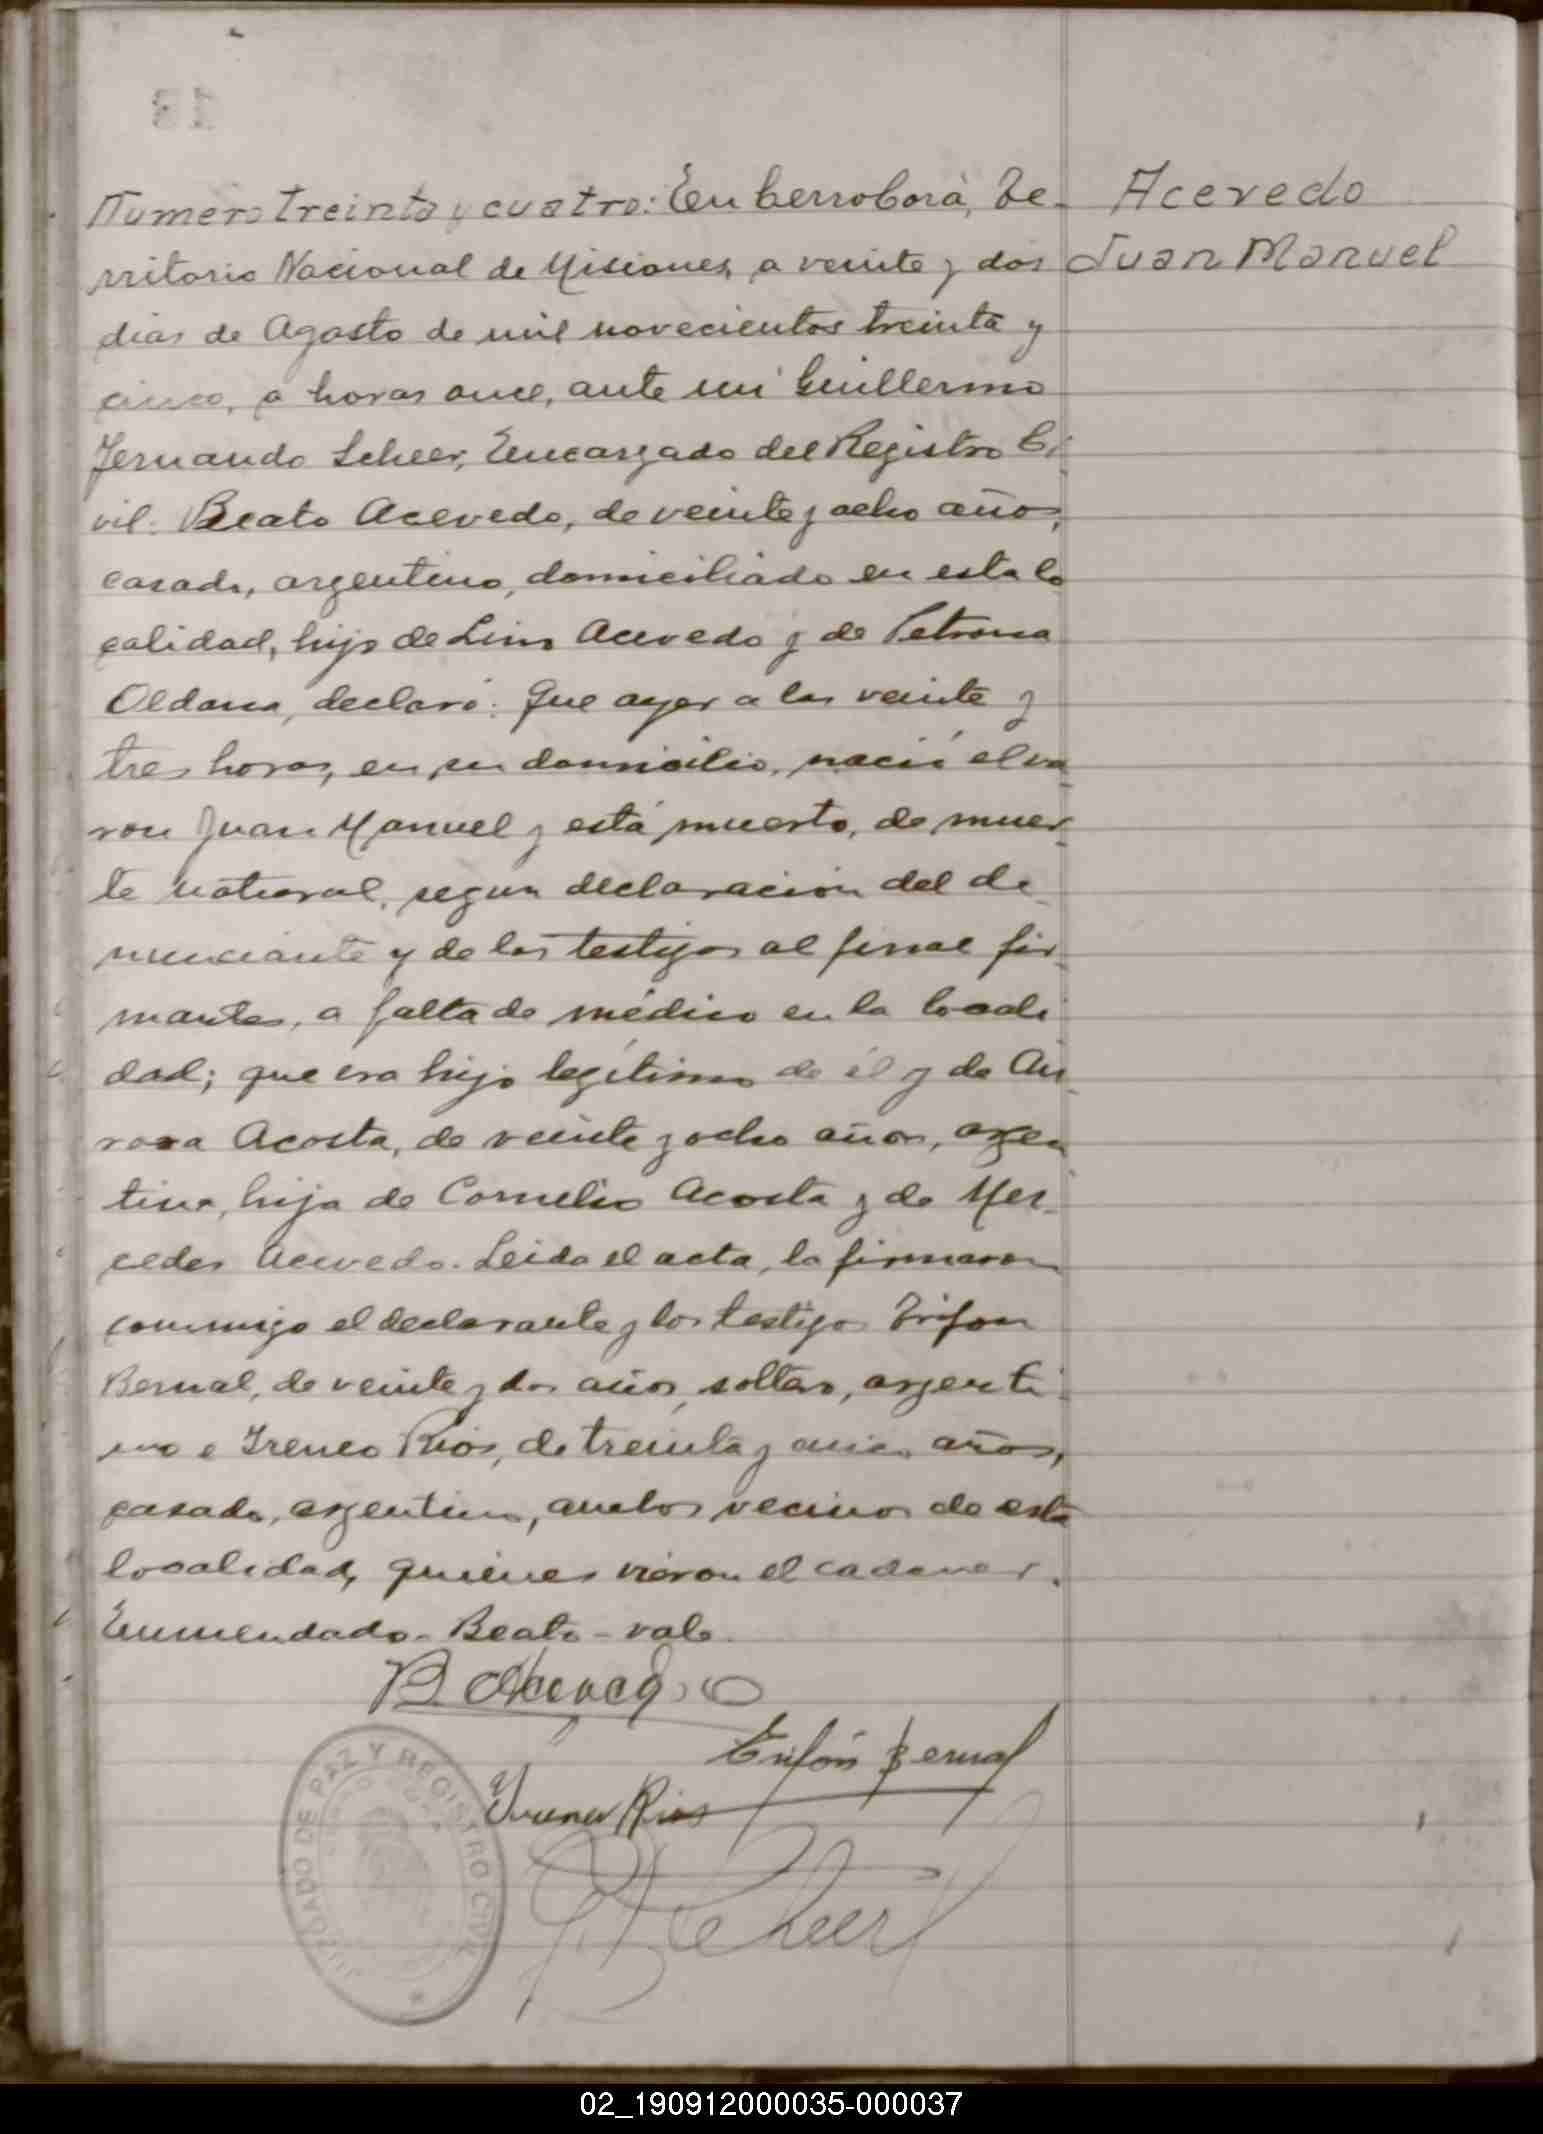 Numero treinta y cuatro: En Cerro Corá, Te-
rritorio Nacional de Misiones, a veinte y dos
dias de Agosto de mil novecientos treinta y
cinco, a horas once, ante mi Guillermo
Fernando Scheer, Encargado del Registro Ci-
vil: Beato Acevedo, de veinte y ocho años,
casado, argentino, domiciliado en esta lo
calidad, hijo de Lino Acevedo y de Petrona
Oldana, declaró: Que ayer a las veinte y
tres horas, en su domicilio, nació el va-
ron Juan Manuel y está muerto, de muer-
te natural, segun declaración del de-
nunciante y de los testigos al final fir-
mantes, a falta de médico en la locali
dad; que era hijo legítimo de él y de Au-
rora Acosta, de veinte y ocho años, argen
tina, hija de Cornelio Acosta y de Mer-
cedes Acevedo. Leida el acta, la firmaron
conmigo el declarante y los testigos Trifon
Bernal, de veinte y dos años, soltero, argenti-
no e Ireneo Rios, de treinta y cinco años,
casado, argentino, ambos vecinos de esta
localidad, quienes vieron el cadaver.
Enmendado - Beato - vale.
B. Acevedo
Trifón Bernal
Ireneo Rios
Scheer
JUZGADO DE PAZ Y REGISTRO CIVIL
Acevedo
Juan Manuel
02_190912000035-000037